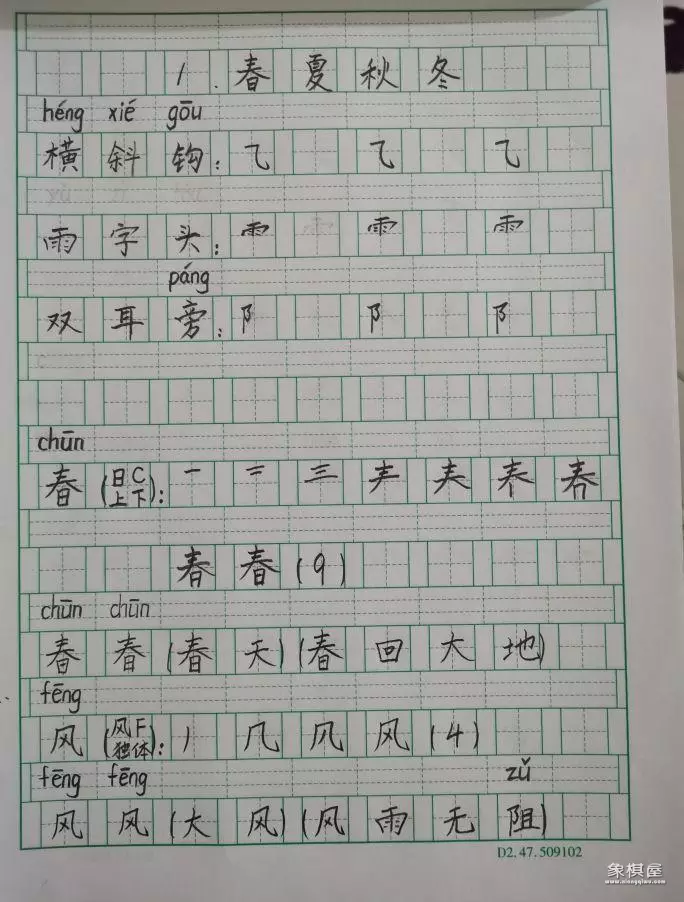 1.春夏秋冬
héng xié gōu
横斜钩:乁 乁 乁
雨字头:⻗ ⻗ ⻗
páng
双耳旁:阝 阝 阝
chūn
春(日C上下):一 二 三 𡗗
春春(9)
chūn chūn
春春(春天)(春回大地)
fēng
风(风F独体):丿 几 风(4)
fēng fēng zǔ
风风(大风)(风雨无阻)
D2.47.509102
象棋屋
www.xiangqiwu.com